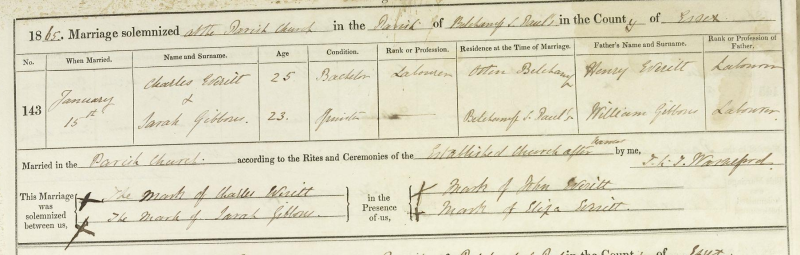 1865. Marriage solemnized at the Parish Church in the Parish of Belchamp S. Pauls in the County of Essex
No. When Married. Name and Surname. Age Condition. Rank or Profession. Residence at the Time of Marriage. Father's Name and Surname. Rank or Profession of Father.
143 January 15th Charles Everitt 25 Bachelor Labourer Otten Belchamp Henry Everitt Labourer
& Sarah Gibbons. 23. Spinster Belchamp S. Paul's William Gibbons Labourer
Married in the Parish Church. according to the Rites and Ceremonies of the Established Church after Banns by me,
This Marriage was solemnized between us, X The mark of Charles Everitt in the Presence of us, X Mark of John Everitt
X The mark of Sarah Gibbons. X Mark of Eliza Everitt.
in the County of Essex